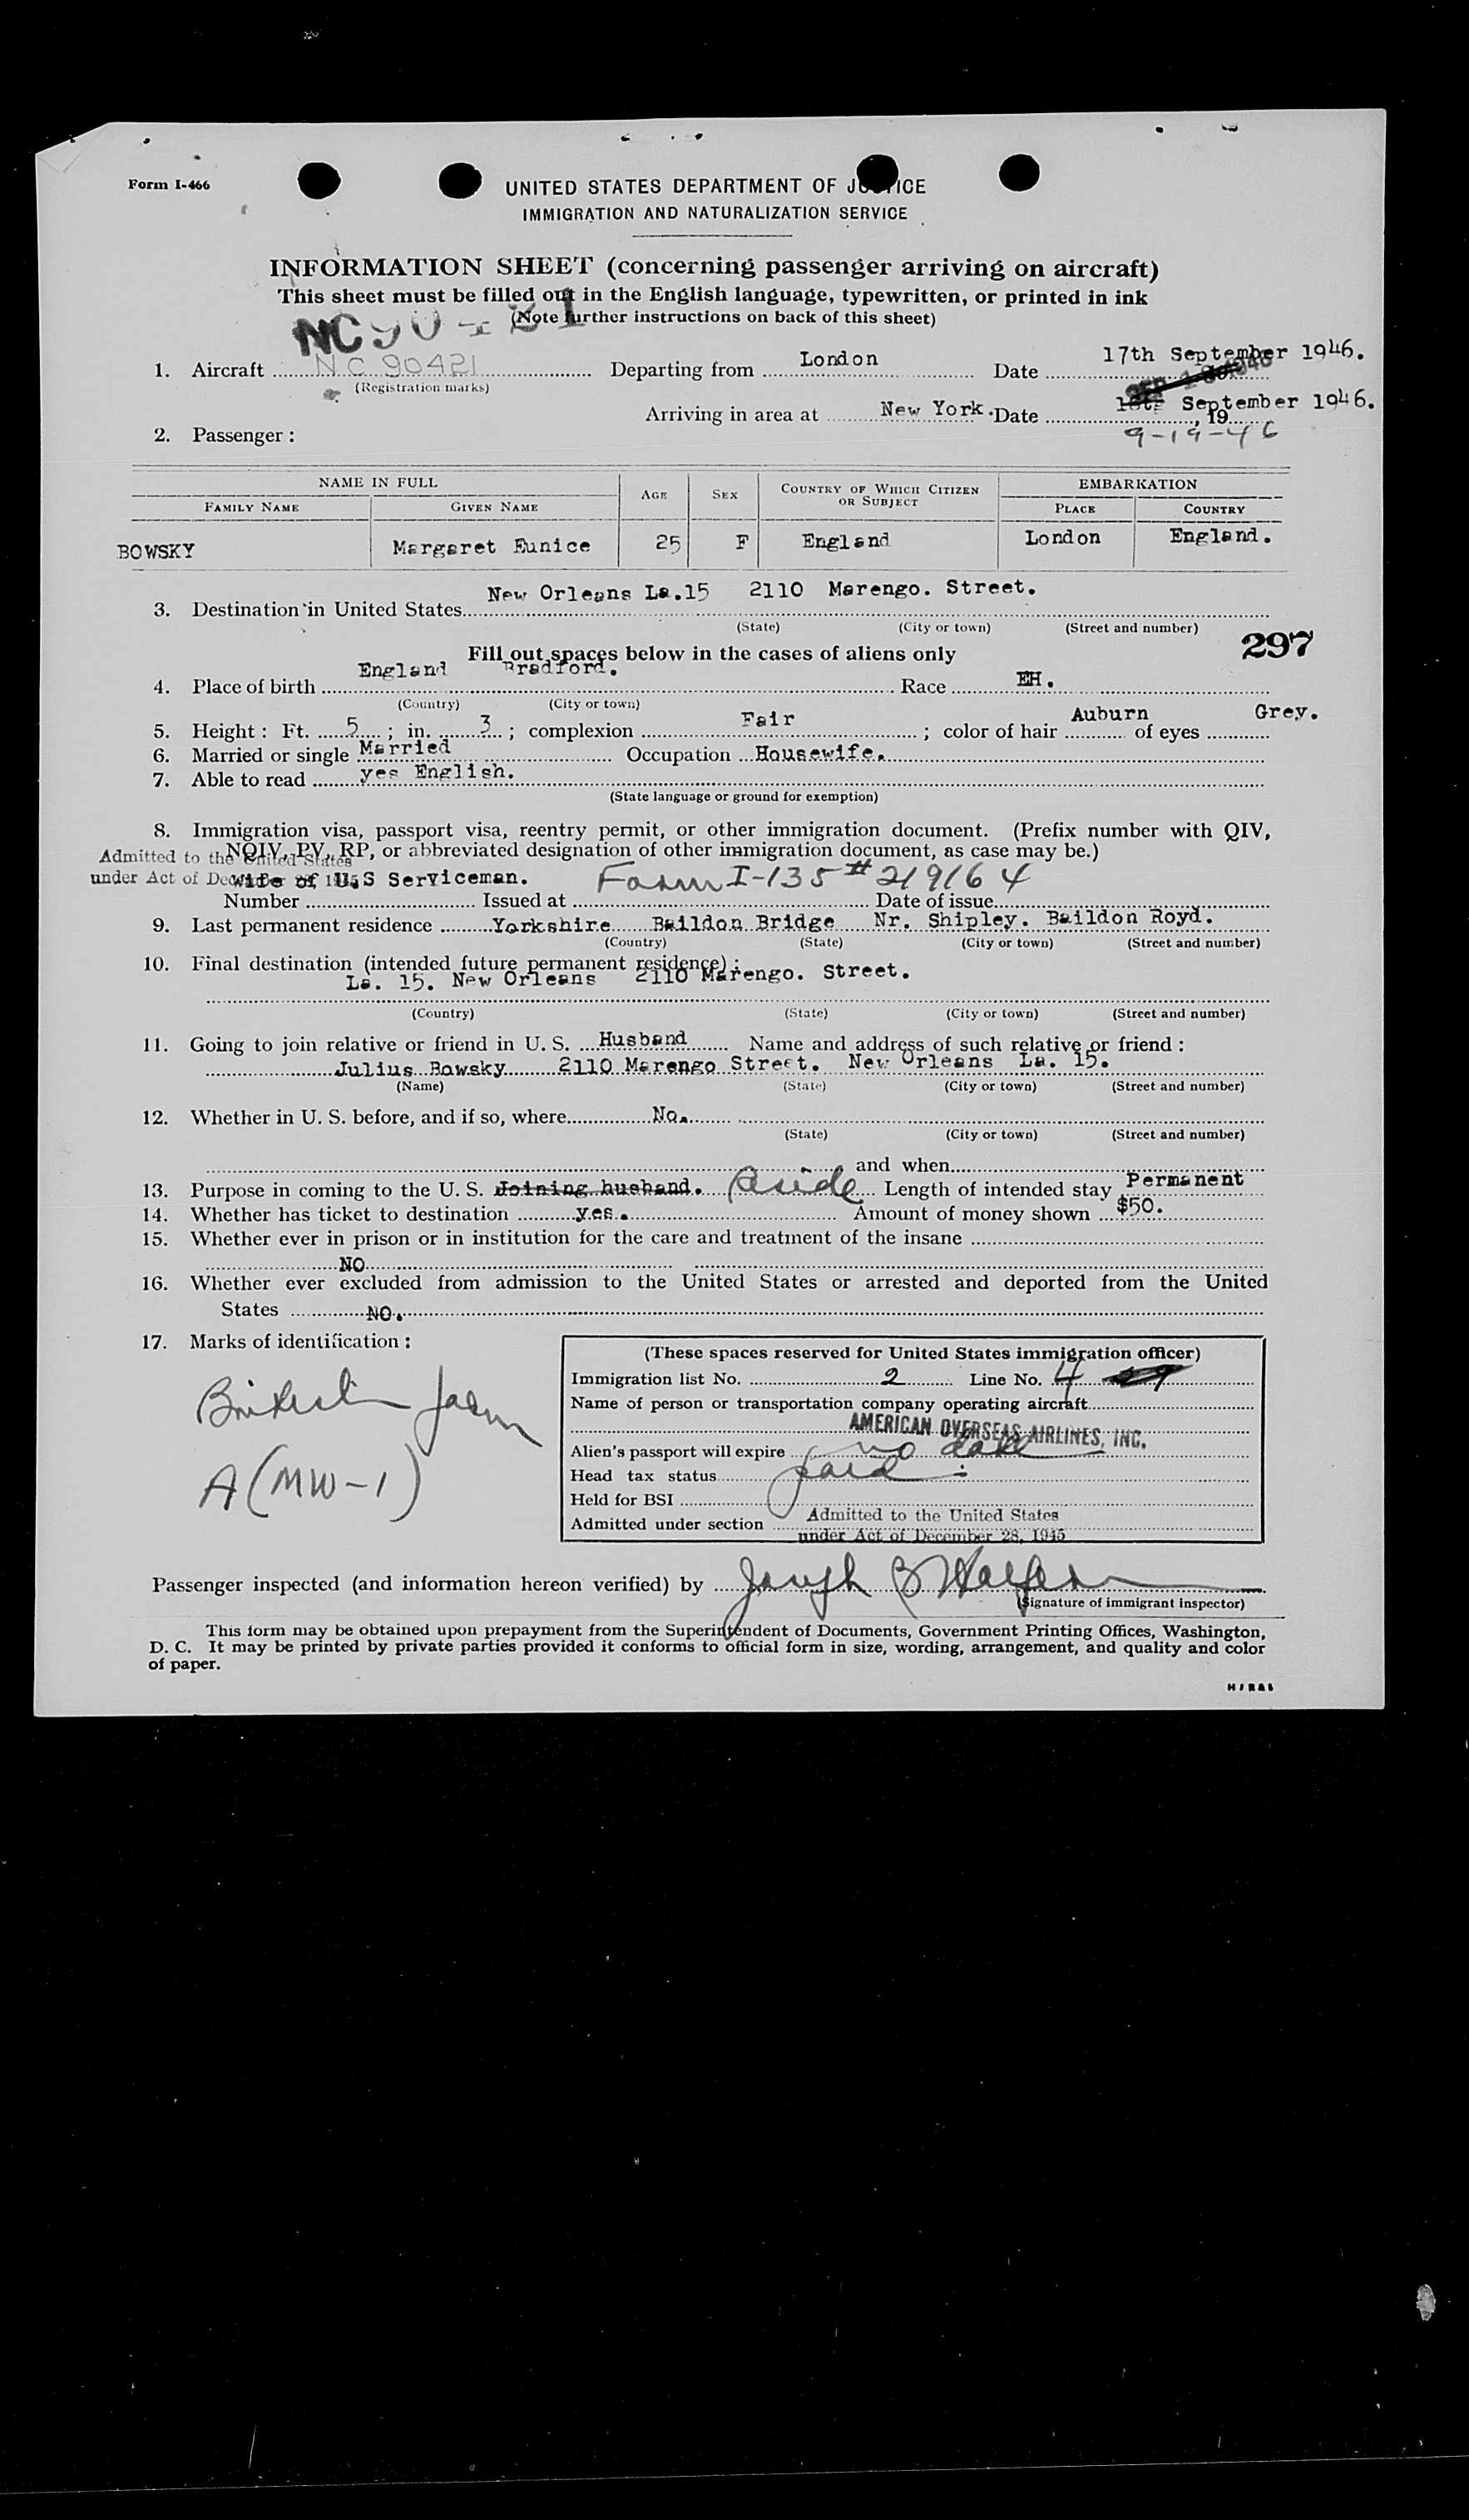 Form I-466
UNITED STATES DEPARTMENT OF JUSTICE
IMMIGRATION AND NATURALIZATION SERVICE
INFORMATION SHEET (concerning passenger arriving on aircraft)
This sheet must be filled out in the English language, typewritten, or printed in ink
(Note further instructions on back of this sheet)
1. Aircraft NC 90421 Departing from London Date 17th September 1946.
(Registration marks)
Arriving in area at New York. Date 18th September 1946. , 19
9-19-46
2. Passenger :
NAME IN FULL AGE SEX COUNTRY OF WHICH CITIZEN OR SUBJECT EMBARKATION
FAMILY NAME GIVEN NAME PLACE COUNTRY
BOWSKY Margaret Eunice 25 F England London England.
3. Destination in United States New Orleans La.15 2110 Marengo. Street.
(State) (City or town) (Street and number)
297
Fill out spaces below in the cases of aliens only
4. Place of birth England Bradford. Race EH.
(Country) (City or town)
5. Height : Ft. 5 ; in. 3 ; complexion Fair ; color of hair Auburn of eyes Grey.
6. Married or single Married Occupation Housewife.
7. Able to read yes English.
(State language or ground for exemption)
8. Immigration visa, passport visa, reentry permit, or other immigration document. (Prefix number with QIV,
NQIV, PV, RP, or abbreviated designation of other immigration document, as case may be.)
Admitted to the United States
under Act of December 28, 1945
Wife of U.S Serviceman. Form I-135 # 219164
Number Issued at Date of issue
9. Last permanent residence Yorkshire Baildon Bridge Nr. Shipley. Baildon Royd.
(Country) (State) (City or town) (Street and number)
10. Final destination (intended future permanent residence) :
La. 15. New Orleans 2110 Marengo. Street.
(Country) (State) (City or town) (Street and number)
11. Going to join relative or friend in U. S. Husband Name and address of such relative or friend :
Julius Bowsky 2110 Marengo Street. New Orleans La. 15.
(Name) (State) (City or town) (Street and number)
12. Whether in U. S. before, and if so, where No.
(State) (City or town) (Street and number)
and when
13. Purpose in coming to the U. S. Joining husband. Reside Length of intended stay Permanent
14. Whether has ticket to destination yes. Amount of money shown $50.
15. Whether ever in prison or in institution for the care and treatment of the insane
NO
16. Whether ever excluded from admission to the United States or arrested and deported from the United
States NO.
17. Marks of identification :
A (MW-1)
(These spaces reserved for United States immigration officer)
Immigration list No. 2 Line No. 4
Name of person or transportation company operating aircraft
AMERICAN OVERSEAS AIRLINES, INC.
Alien's passport will expire no date
Head tax status paid
Held for BSI
Admitted under section Admitted to the United States
under Act of December 28, 1945
Passenger inspected (and information hereon verified) by Joseph B
(Signature of immigrant inspector)
This form may be obtained upon prepayment from the Superintendent of Documents, Government Printing Offices, Washington,
D. C. It may be printed by private parties provided it conforms to official form in size, wording, arrangement, and quality and color
of paper.